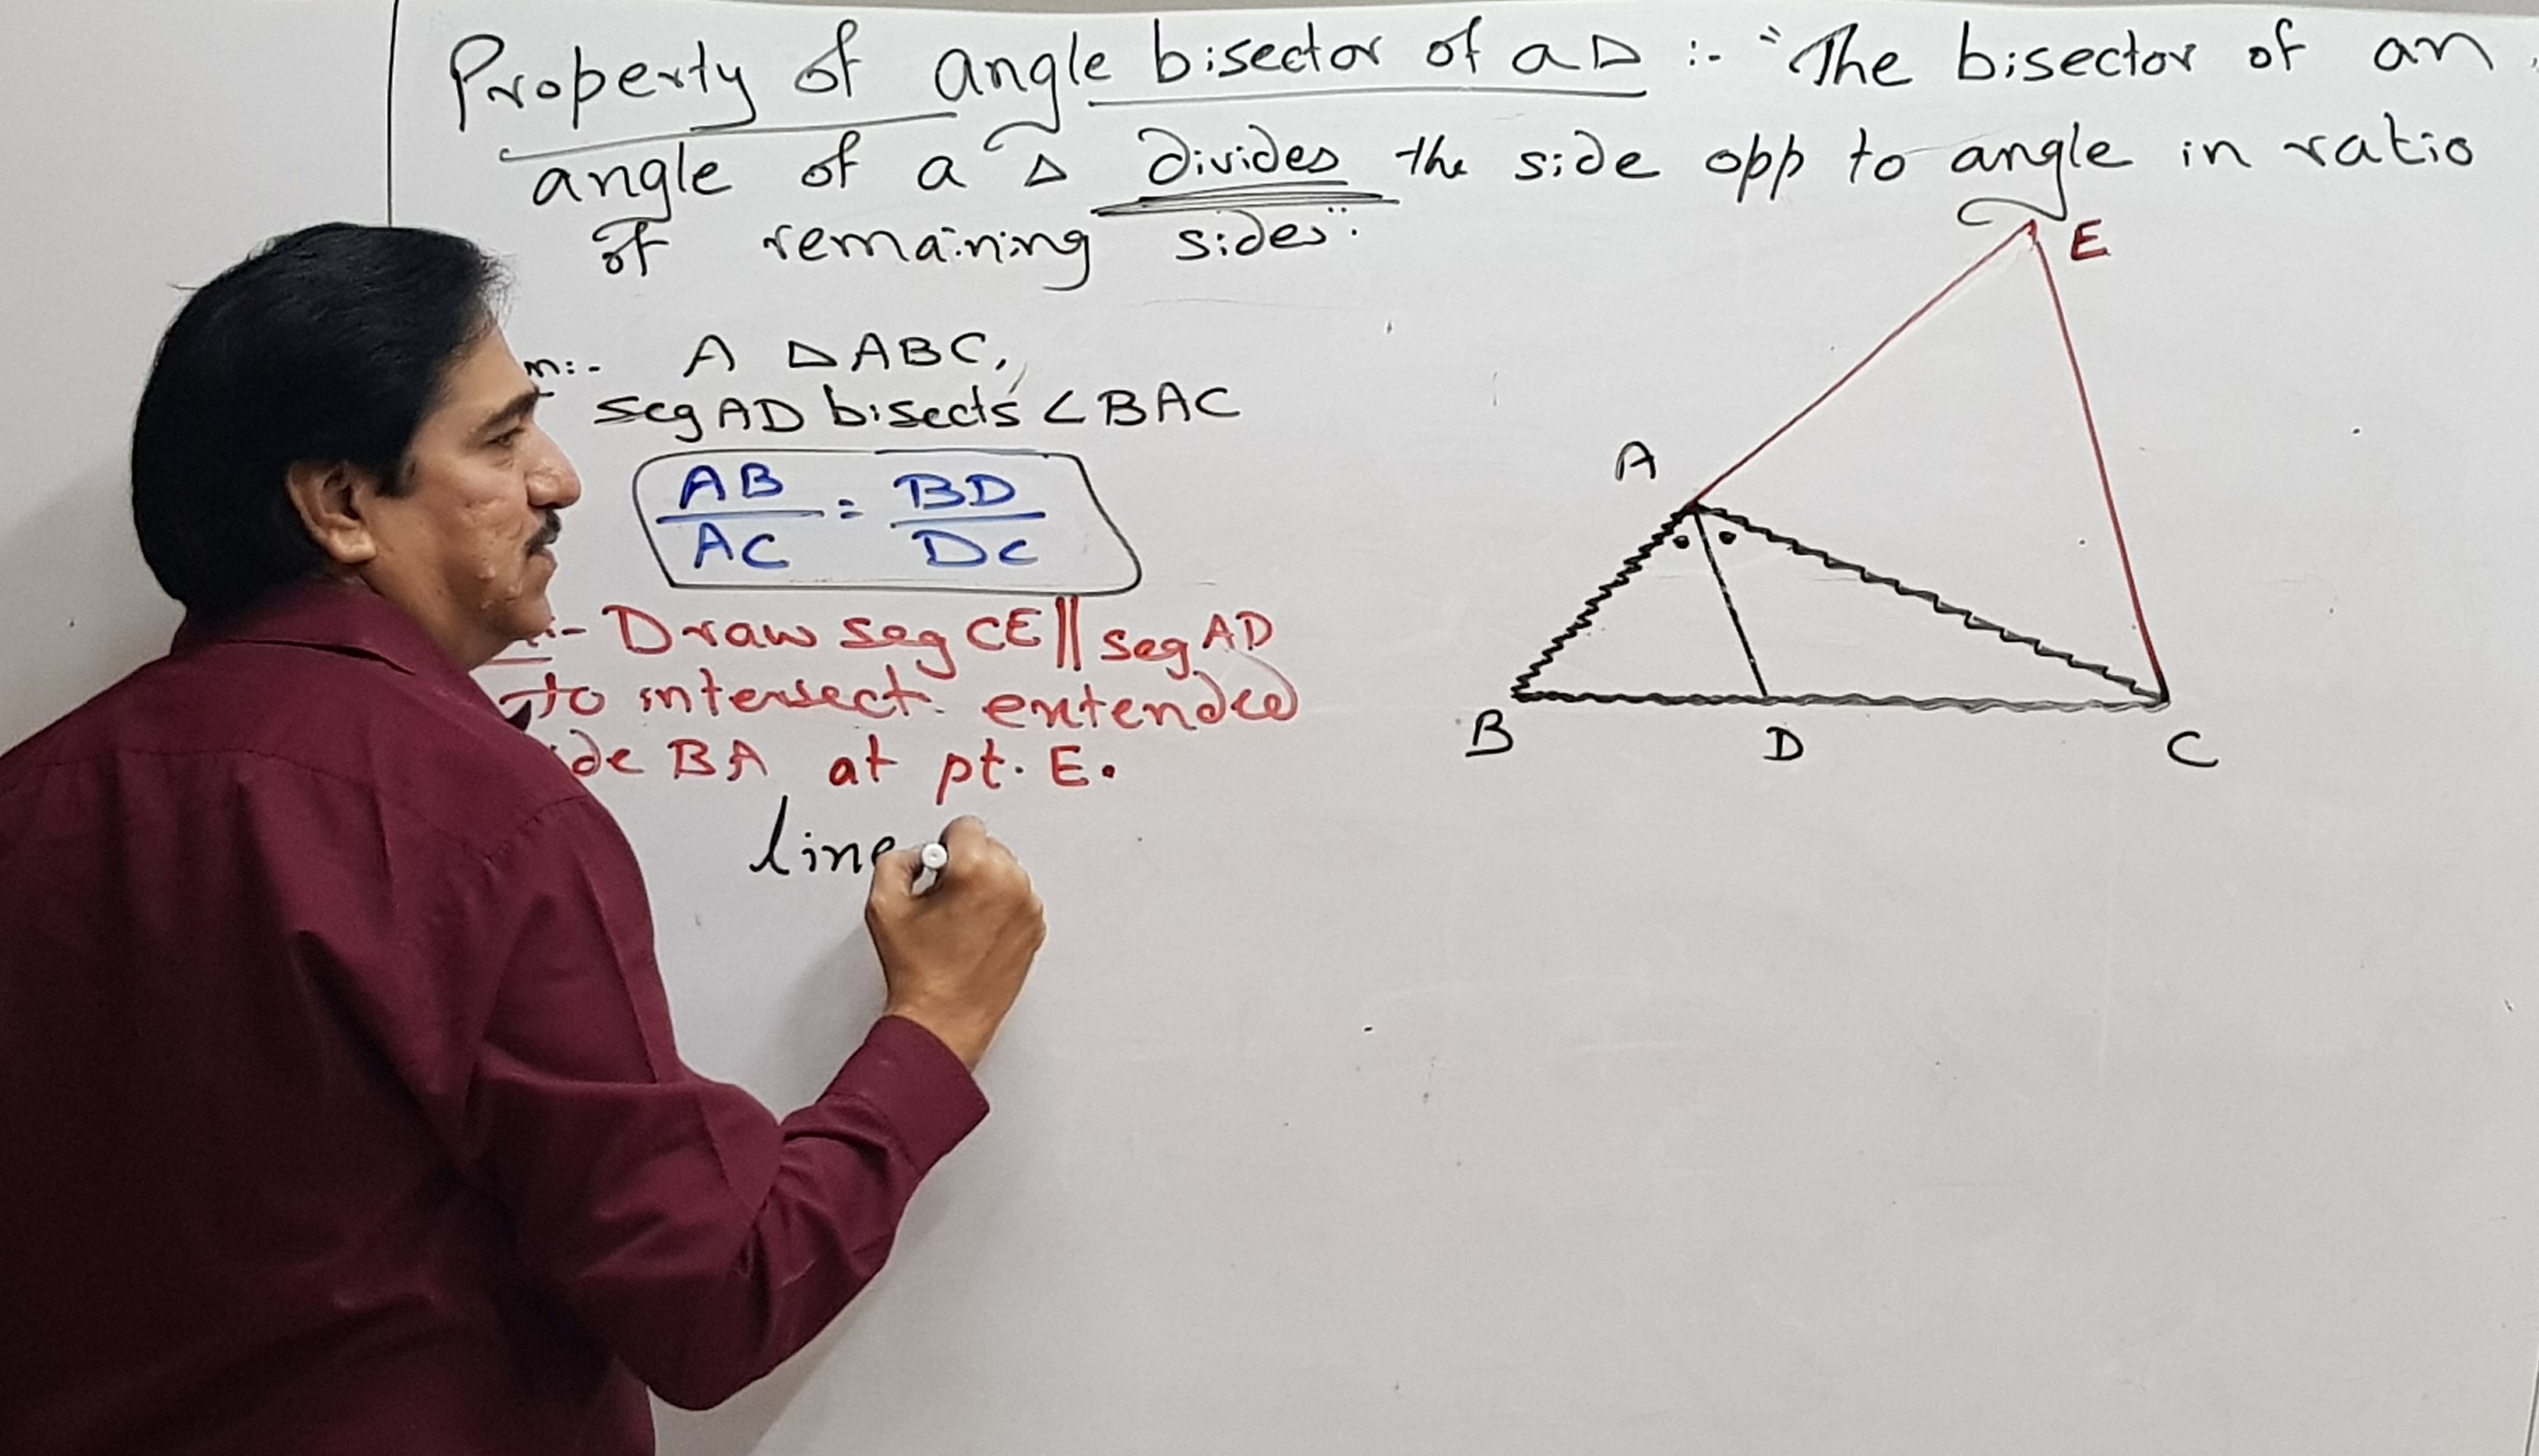 Property of angle bisector of a △ :- "The bisector of an
angle of a △ divides the side opp to angle in ratio
of remaining sides".
n:- A △ABC,
seg AD bisects ∠BAC
AB/AC = BD/DC
:- Draw seg CE || seg AD
to intersect extended
de BA at pt. E.
line
E
A
B
D
C